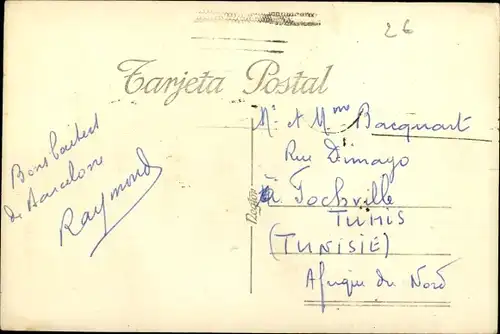 26
Tarjeta Postal
Bons baisers
de Barcelone
Raymond
Mr et Mme Bacquart
Rue Dimayo
à Fochville
TUNIS
(TUNISIE)
Afrique du Nord